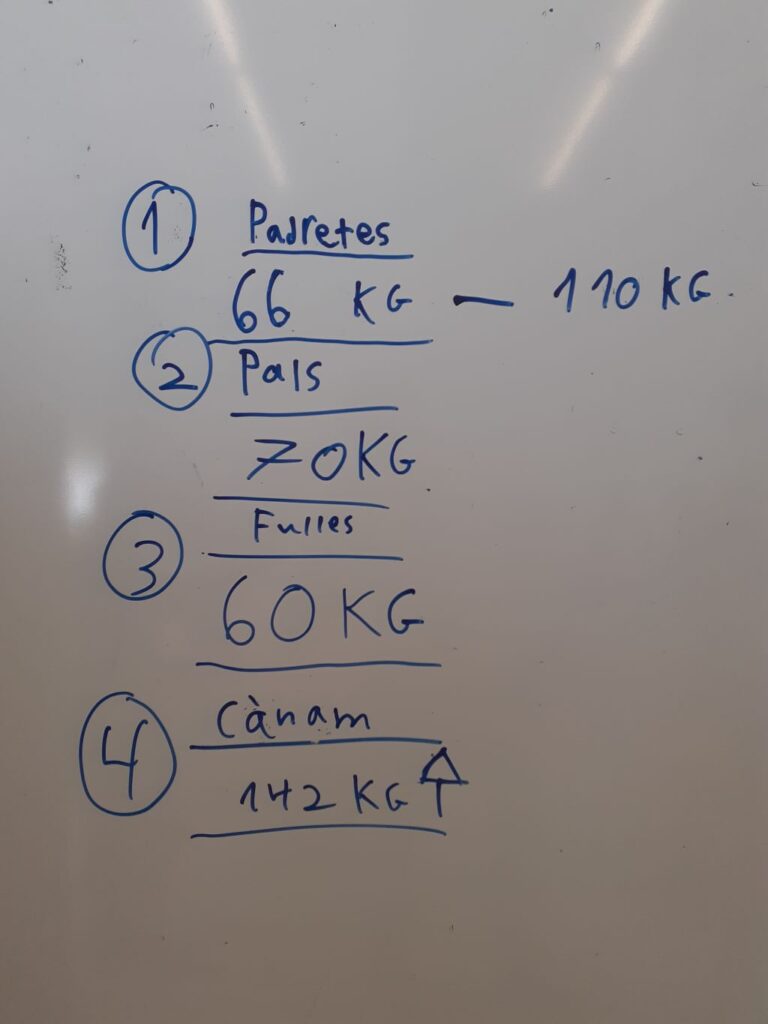 1 Padretes
66 KG — 110 KG.
2 Pals
70KG
3 Fulles
60 KG
4 Cànam
142 KG ↑